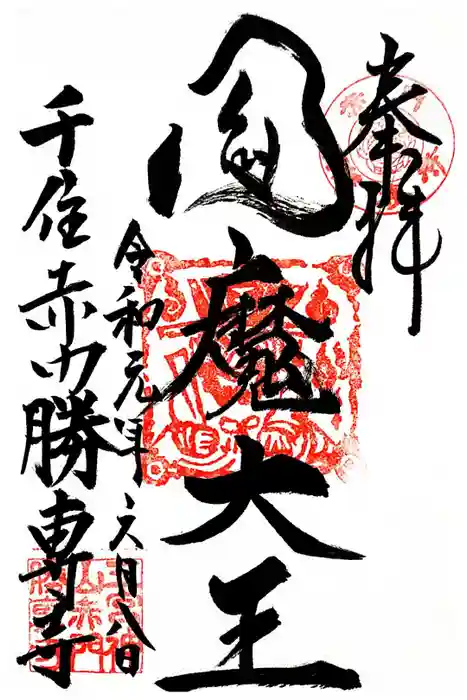 奉拝
閻魔大王
令和元年六月八日
千住赤門勝専寺